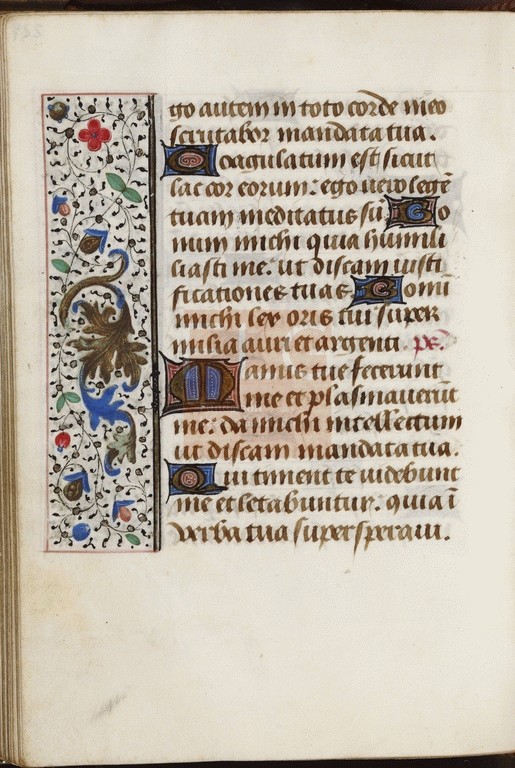 go autem in toto corde meo
scrutabor mandata tua.
Coagulatum est sicut
lac cor eorum: ego vero legē
tuam meditatus sū. Bo
num michi quia humili
liasti me: ut discam iusti
ficationes tuas. Bonū
michi lex oris tui super
milia auri et argenti. ps.
Manus tue fecerunt
me et plasmaverūt
me: da michi intellectum
ut discam mandata tua.
Qui timent te videbunt
me et letabuntur. quia ī
verba tua supersperavi.